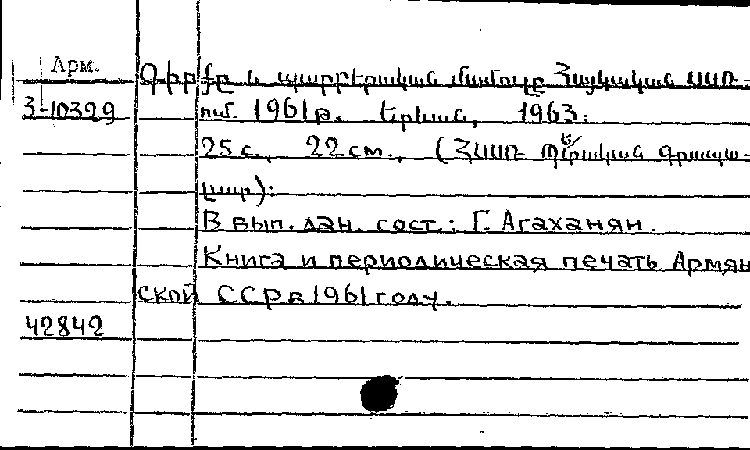 Арм.
Գիրքը և պարբերական մամուլը Հայկական ՍՍՌ-
3-10329
ում 1961թ. Երևան, 1963.
25 с., 22 см., (ՀՍՍՌ Պետական գրապա-
լատ):
В вып. дан. сост.: Г. Агаханян.
Книга и периодическая печать Армян
ской ССР в 1961 году.
42842